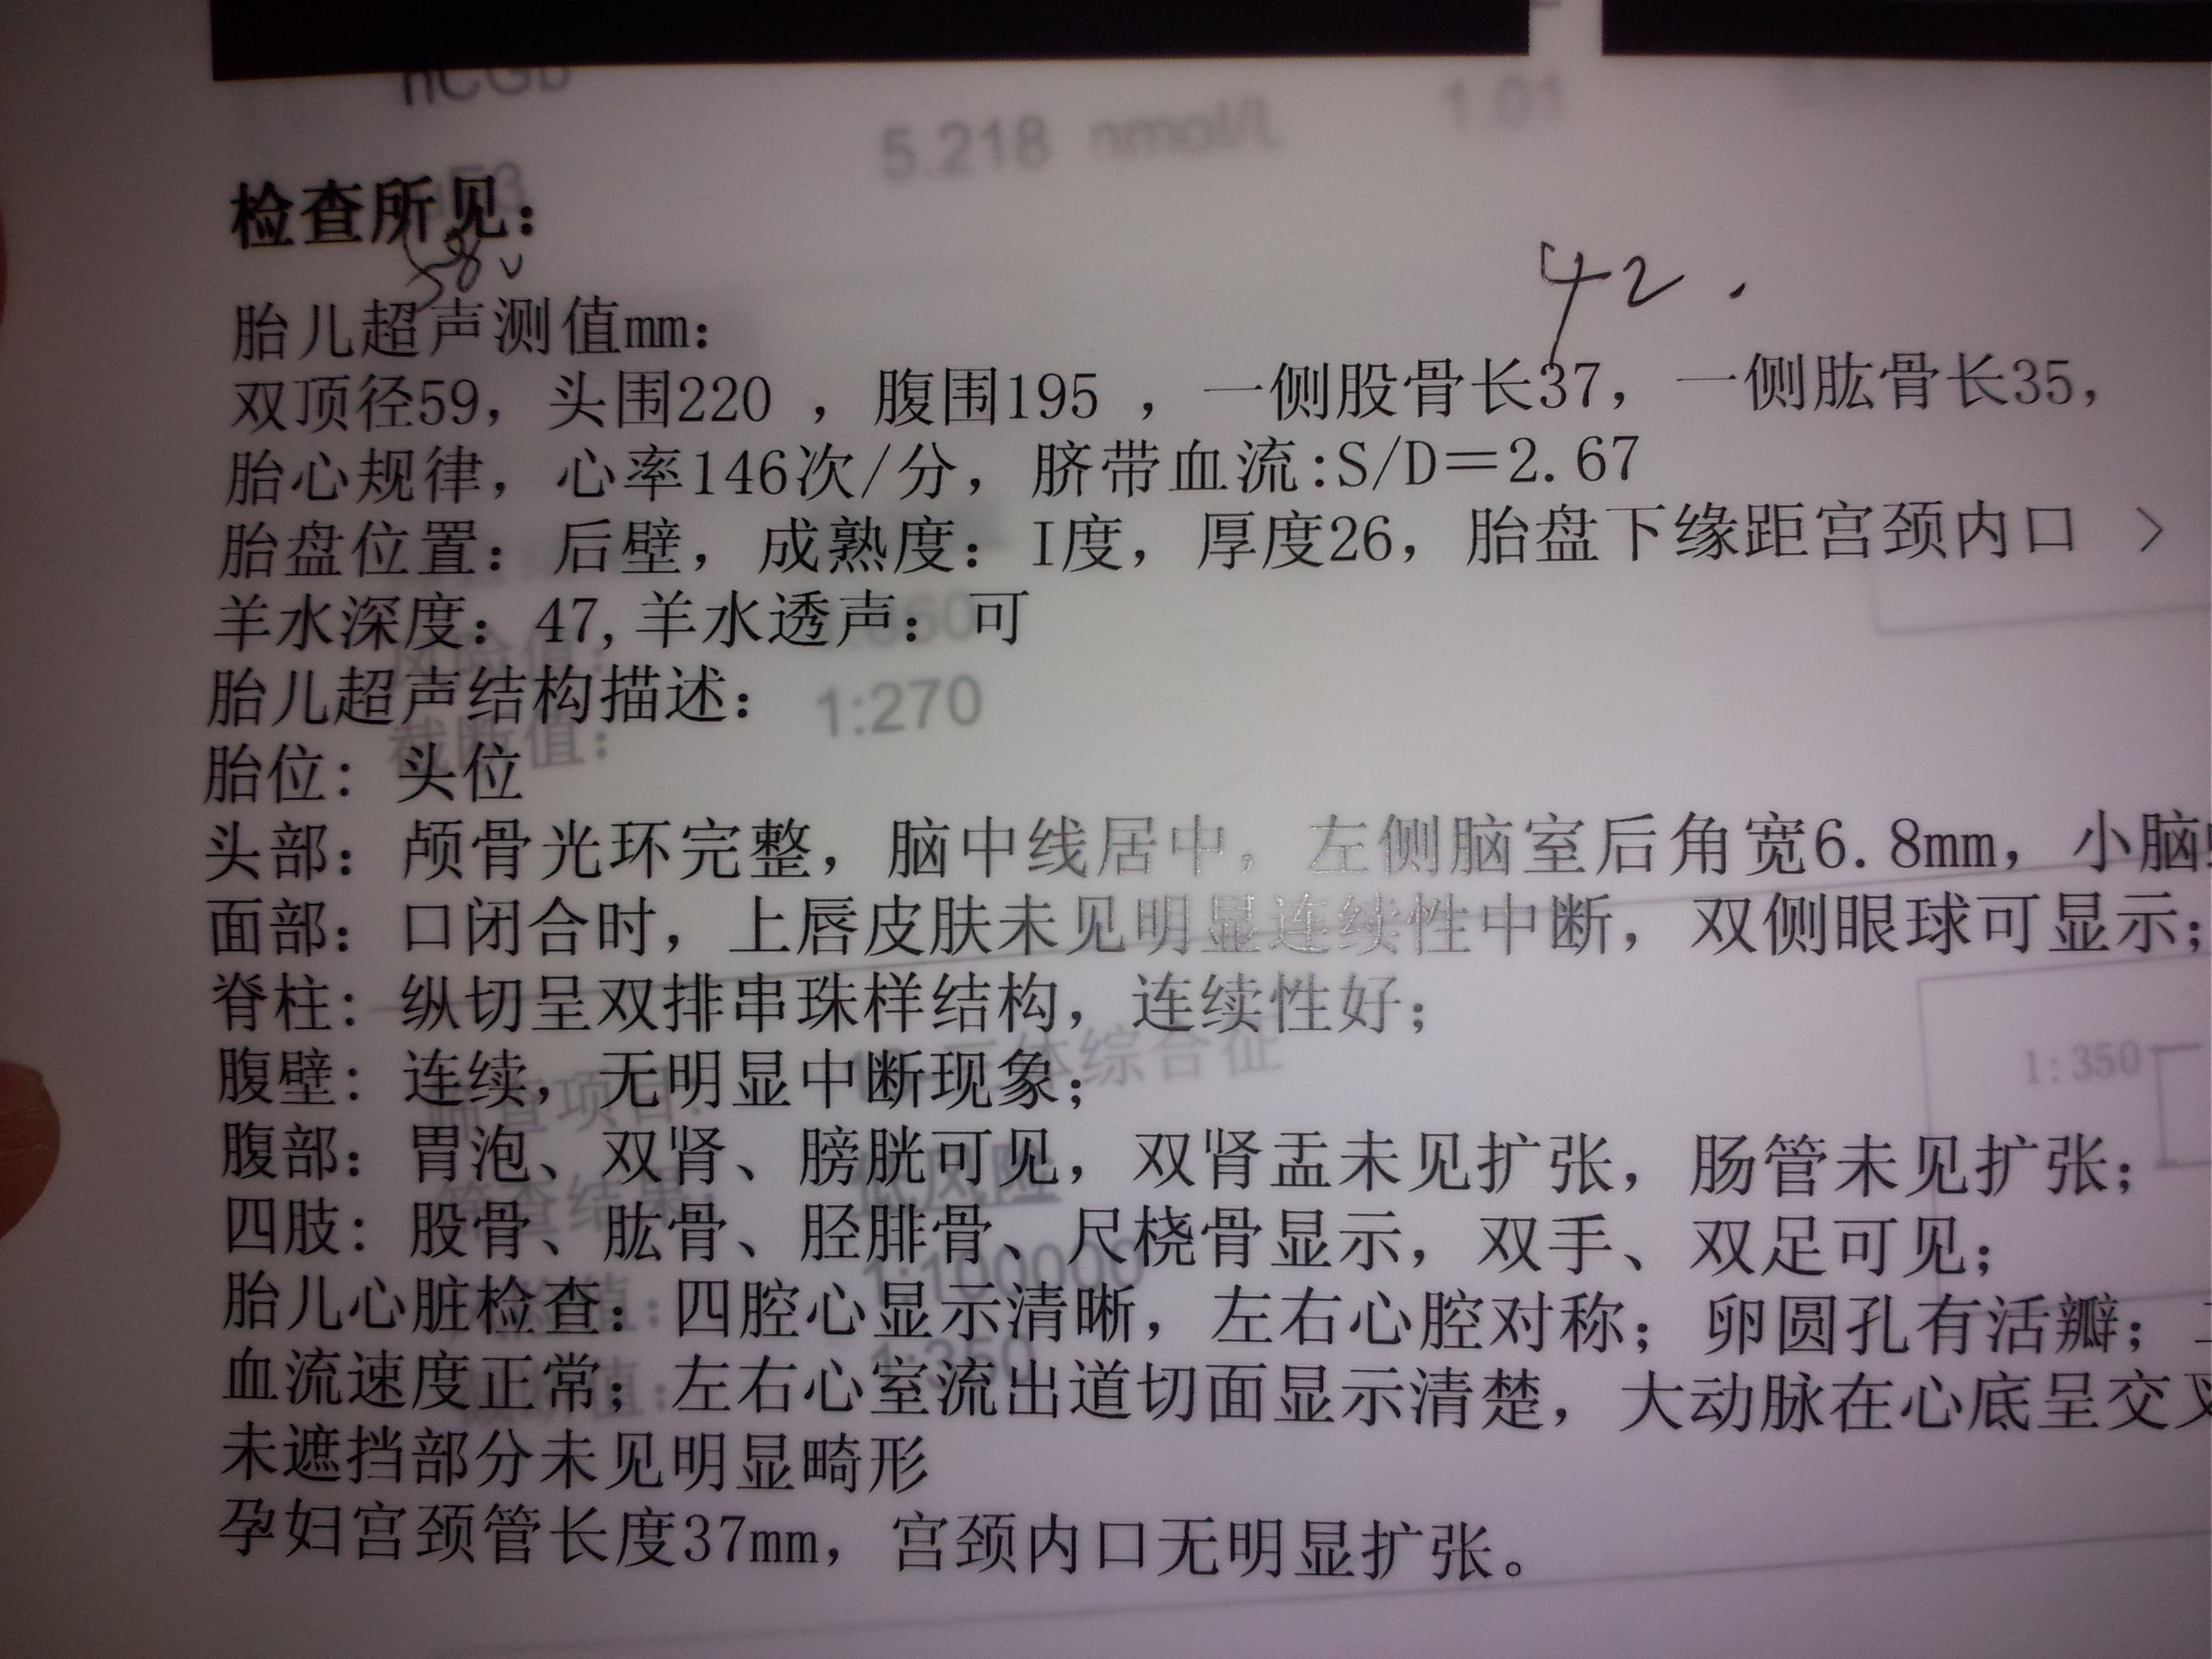 hCGb
5.218 nmol/L 1.01
检查所见:
58
42.
胎儿超声测值mm:
双顶径59, 头围220 , 腹围195 , 一侧股骨长37, 一侧肱骨长35,
胎心规律, 心率146次/分, 脐带血流:S/D=2.67
胎盘位置: 后壁, 成熟度: I度, 厚度26, 胎盘下缘距宫颈内口 >
羊水深度: 47,羊水透声: 可
风险值:
胎儿超声结构描述:
截断值: 1:270
胎位: 头位
头部: 颅骨光环完整, 脑中线居中, 左侧脑室后角宽6.8mm, 小脑
面部: 口闭合时, 上唇皮肤未见明显连续性中断, 双侧眼球可显示;
脊柱: 纵切呈双排串珠样结构, 连续性好;
1:350
腹壁: 连续, 无明显中断现象;
筛查项目: 三体综合征
腹部: 胃泡、双肾、膀胱可见, 双肾盂未见扩张, 肠管未见扩张;
筛查结果: 低风险
四肢: 股骨、肱骨、胫腓骨、尺桡骨显示, 双手、双足可见;
1:100000
胎儿心脏检查: 四腔心显示清晰, 左右心腔对称; 卵圆孔有活瓣;
1:350
血流速度正常; 左右心室流出道切面显示清楚, 大动脉在心底呈交叉
未遮挡部分未见明显畸形
孕妇宫颈管长度37mm, 宫颈内口无明显扩张。